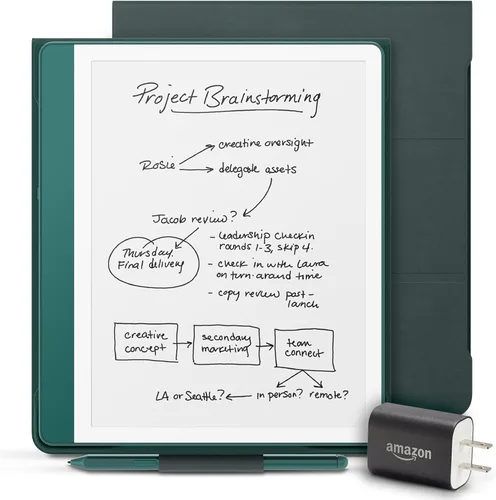 Project Brainstorming
creative oversight
Rosie
delegate assets
Jacob review?
- leadership checkin
rounds 1-3, skip 4.
Thursday.
Final delivery
- check in with Laura
on turn-around time
- copy review post-
launch
creative
concept
secondary
marketing
team
connect
LA or Seattle?
in person?
remote?
amazon